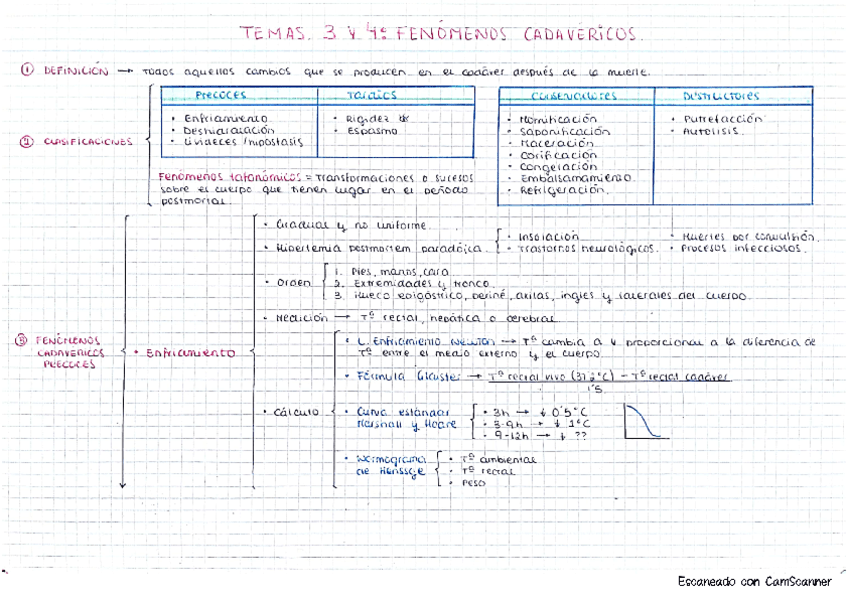 TEMAS. 3 Y 4: FENÓMENOS CADAVÉRICOS.
① DEFINICIÓN → Todos aquellos cambios que se producen en el cadáver después de la muerte.
② CLASIFICACIONES
PRECOCES
• Enfriamiento
• Deshidratación
• Livideces / hipostasis
TARDÍOS
• Rigidez
• Espasmo
CONSERVADORES
• Momificación
• Saponificación
• Maceración
• Corificación
• Congelación
• Embalsamamiento.
• Refrigeración.
DESTRUCTORES
• Putrefacción
• Autolisis.
Fenómenos tafonómicos = Transformaciones o sucesos
sobre el cuerpo que tienen lugar en el período
postmortal.
③ FENÓMENOS
CADAVÉRICOS
PRECOCES
• Enfriamiento
• Gradual y no uniforme.
• Hipertemia postmortem paradójica.
• Insolación
• Trastornos neurológicos.
• Muertes por convulsión.
• Procesos infecciosos.
• Orden
1. Pies, manos, cara
2. Extremidades y tronco.
3. Hueco epigástrico, periné, axilas, ingles y laterales del cuerpo.
• Medición → Tª rectal, hepática o cerebral.
• Cálculo
• L. Enfriamiento Newton → Tª cambia a v proporcional a la diferencia de
Tª entre el medio externo y el cuerpo
• Fórmula Glaister → Tª rectal vivo (37,2ºC) - Tª rectal cadáver
1'5
• Curva estándar
Marshall y Hoare
• 3h → ↓ 0'5ºC
• 3-9h → ↓ 1ºC
• 9-12h → ↓ ??
• Normograma
de Henssge
• Tª ambiental
• Tª rectal
• Peso
Escaneado con CamScanner